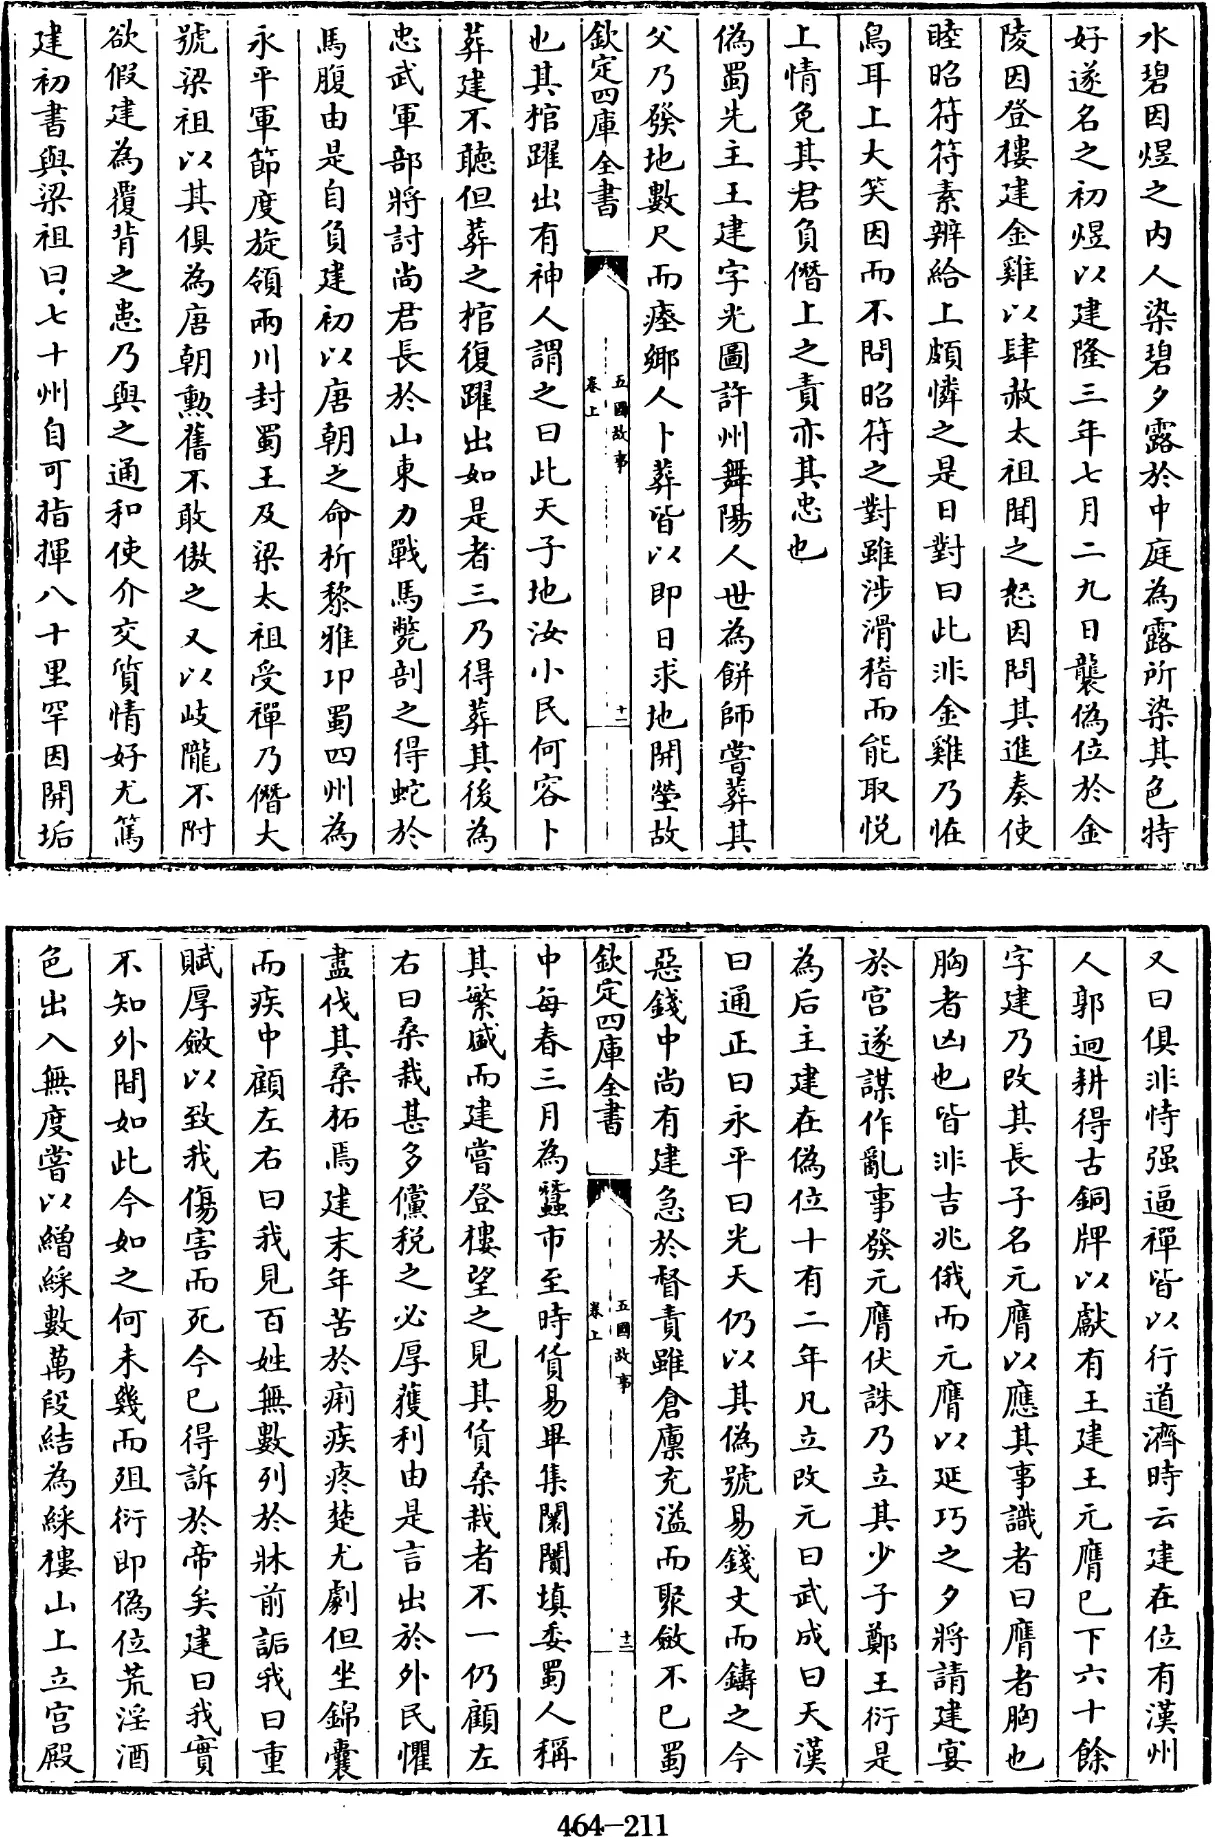 水碧因煜之内人染碧夕露於中庭為露所染其色特
好遂名之初煜以建隆三年七月二九日襲偽位於金
陵因登樓建金雞以肆赦太祖聞之怒因問其進奏使
睦昭符符素辨給上頗憐之是日對曰此非金雞乃怪
鳥耳上大笑因而不問昭符之對雖涉滑稽而能取悦
上情免其君負僭上之責亦其忠也
偽蜀先主王建字光圖許州舞陽人世為餅師嘗葬其
父乃發地數尺而瘞鄉人卜葬皆以即日求地開塋故
欽定四庫全書
五國故事
卷上
十一
也其棺躍出有神人謂之曰此天子地汝小民何容卜
葬建不聽但葬之棺復躍出如是者三乃得葬其後為
忠武軍部將討尚君長於山東力戰馬斃剖之得蛇於
馬腹由是自負建初以唐朝之命析黎雅卭蜀四州為
永平軍節度旋領兩川封蜀王及梁太祖受禪乃僭大
號梁祖以其俱為唐朝勲舊不敢傲之又以岐隴不附
欲假建為覆背之患乃與之通和使介交質情好尤篤
建初書與梁祖曰七十州自可指揮八十里罕因開垢
又曰俱非恃强逼禪皆以行道濟時云建在位有漢州
人郭迥耕得古銅牌以獻有王建王元膺已下六十餘
字建乃改其長子名元膺以應其事識者曰膺者胸也
胸者凶也皆非吉兆俄而元膺以延巧之夕將請建宴
於宫遂謀作亂事發元膺伏誅乃立其少子鄭王衍是
為后主建在偽位十有二年凡立改元曰武成曰天漢
曰通正曰永平曰光天仍以其偽號易錢文而鑄之今
惡錢中尚有建急於督責雖倉廪充溢而聚斂不已蜀
欽定四庫全書
五國故事
卷上
十二
中每春三月為蠶市至時貨易畢集闤闠填委蜀人稱
其繁盛而建嘗登樓望之見其貨桑栽者不一仍顧左
右曰桑栽甚多儻税之必厚獲利由是言出於外民懼
盡伐其桑柘焉建末年苦於痢疾疼楚尤劇但坐錦囊
而疾中顧左右曰我見百姓無數列於牀前詬我曰重
賦厚斂以致我傷害而死今已得訴於帝矣建曰我實
不知外間如此今如之何未幾而殂衍即偽位荒淫酒
色出入無度嘗以繒綵數萬段結為綵樓山上立宫殿
464-211